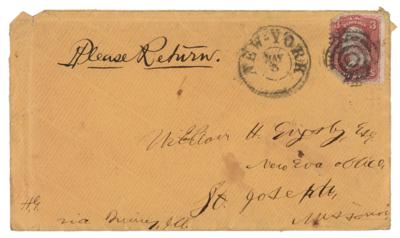 3
Please Return.
NEW-YORK
MAY
William H. Grigsby, Esq
New Era office,
St. Joseph,
Missouri
via Quincy, Ill.